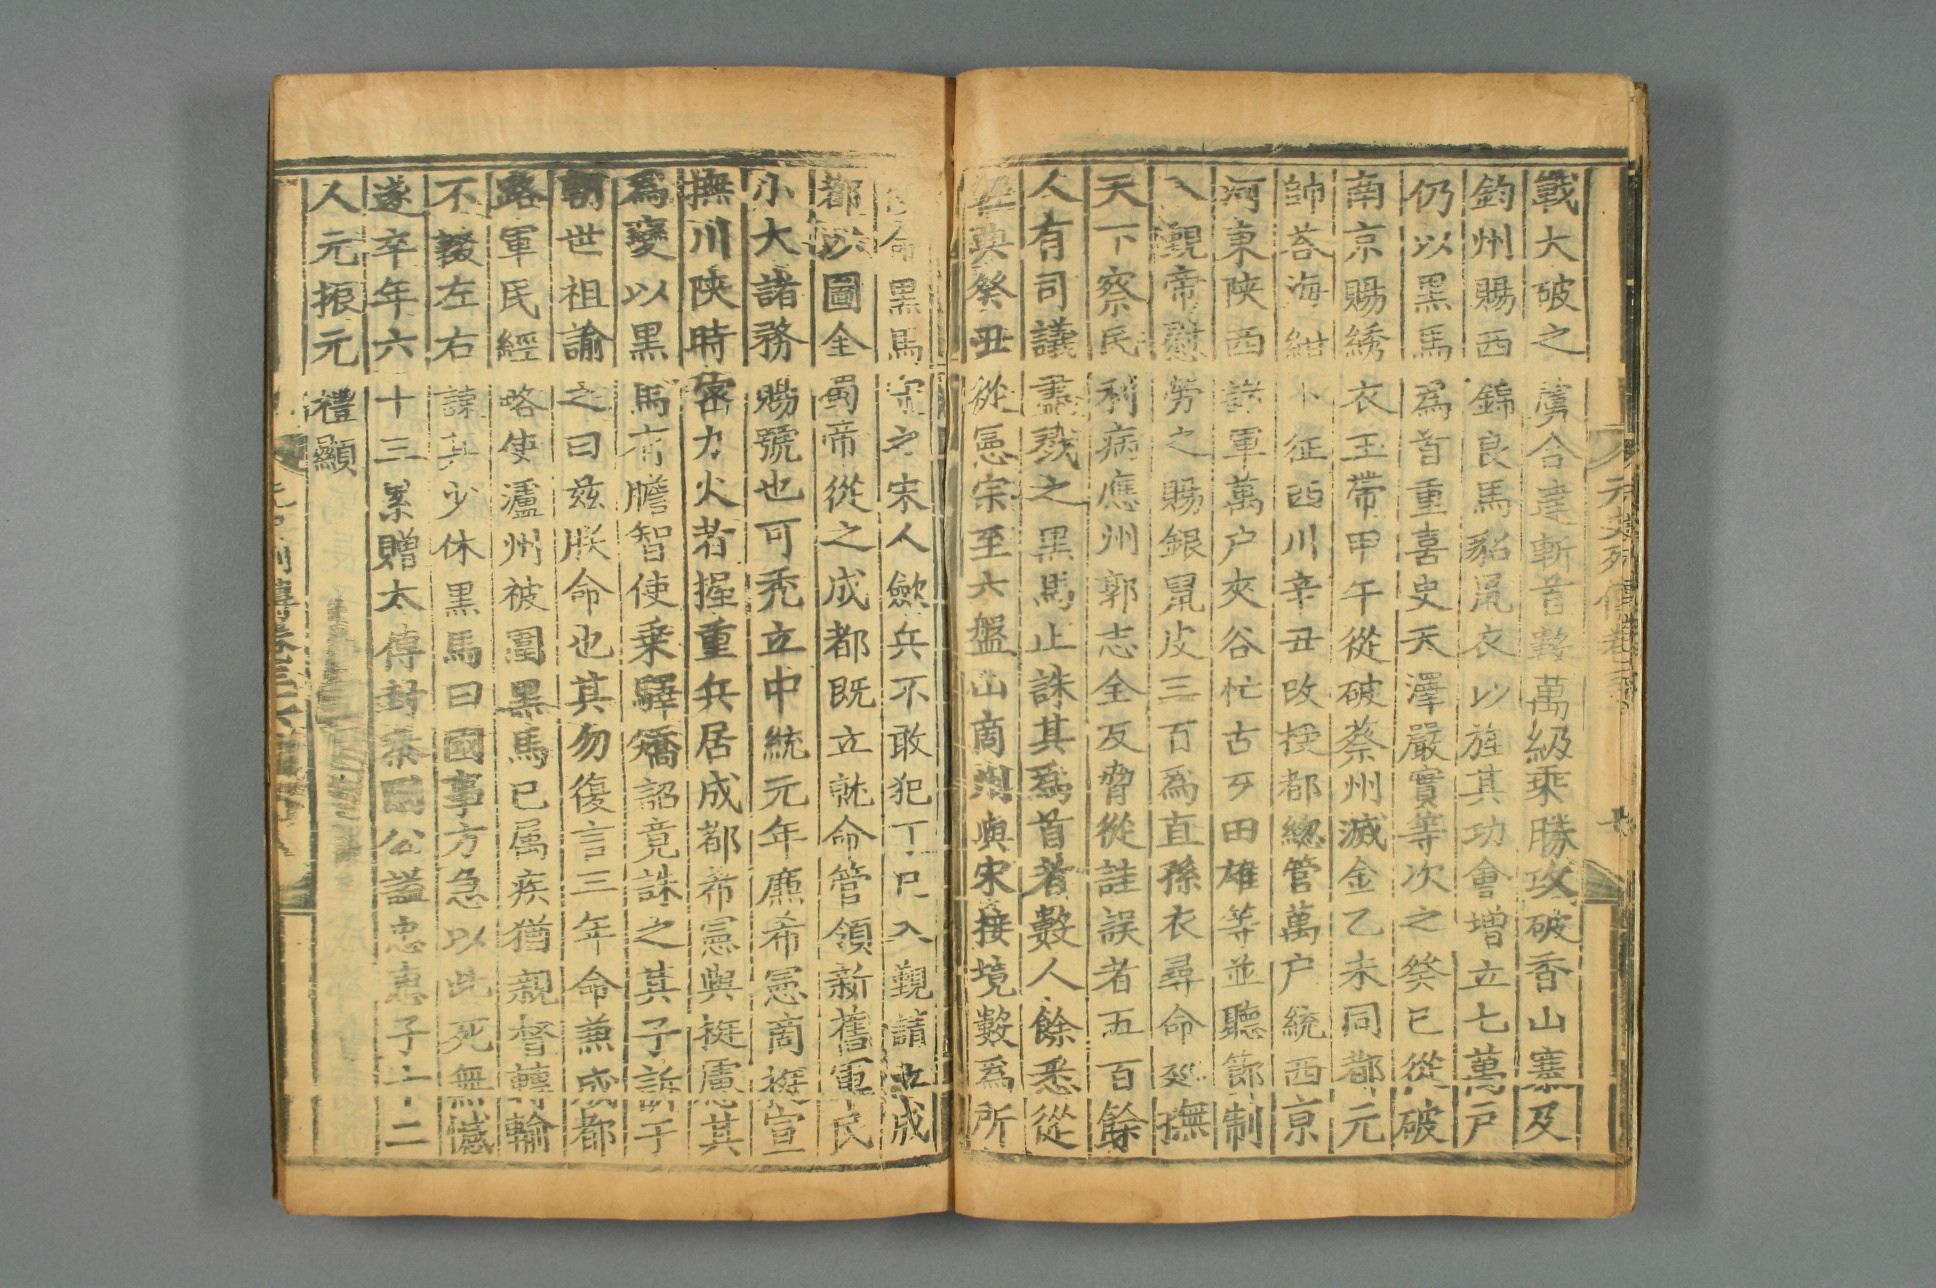 戰大破之虜合達斬首數萬級乘勝攻破香山寨及
鈞州賜西錦良馬貂鼠衣以旌其功會增立七萬戶
仍以黑馬爲首重喜史天澤嚴實等次之癸巳從破
南京賜綉衣玉帶甲午從破蔡州滅金乙未同都元
帥荅海紺卜征西川辛丑改授都緫管萬戶統西京
河東陝西諸軍萬户夾谷忙古歹田雄等並聽節制
入覲帝慰勞之賜銀鼠皮三百爲直孫衣尋命廵撫
天下察民利病應州郭志全反脅從詿誤者五百餘
人有司議盡戮之黑馬止誅其爲首者數人餘悉從
癸丑從憲宗至六盤山商州與宋接境數爲所
命黑馬守之宋人歛兵不敢犯丁巳入覲請立成
都以圖全蜀帝從之成都既立就命管領新舊軍民
小大諸務賜號也可禿立中統元年廉希憲商挺宣
撫川陝時密力火者握重兵居成都希憲與挺慮其
爲變以黑馬有膽智使乗驛矯詔竟誅之其子訴于
朝世祖諭之曰兹朕命也其勿復言三年命兼成都
路軍民經略使瀘州被圍黑馬已属疾猶親督轉輸
不輟左右諫其少休黒馬曰國事方急以此死無憾
遂卒年六十三累贈太傅封秦國公謚忠惠子十二
人元振元禮顯
元史列傳卷三十六